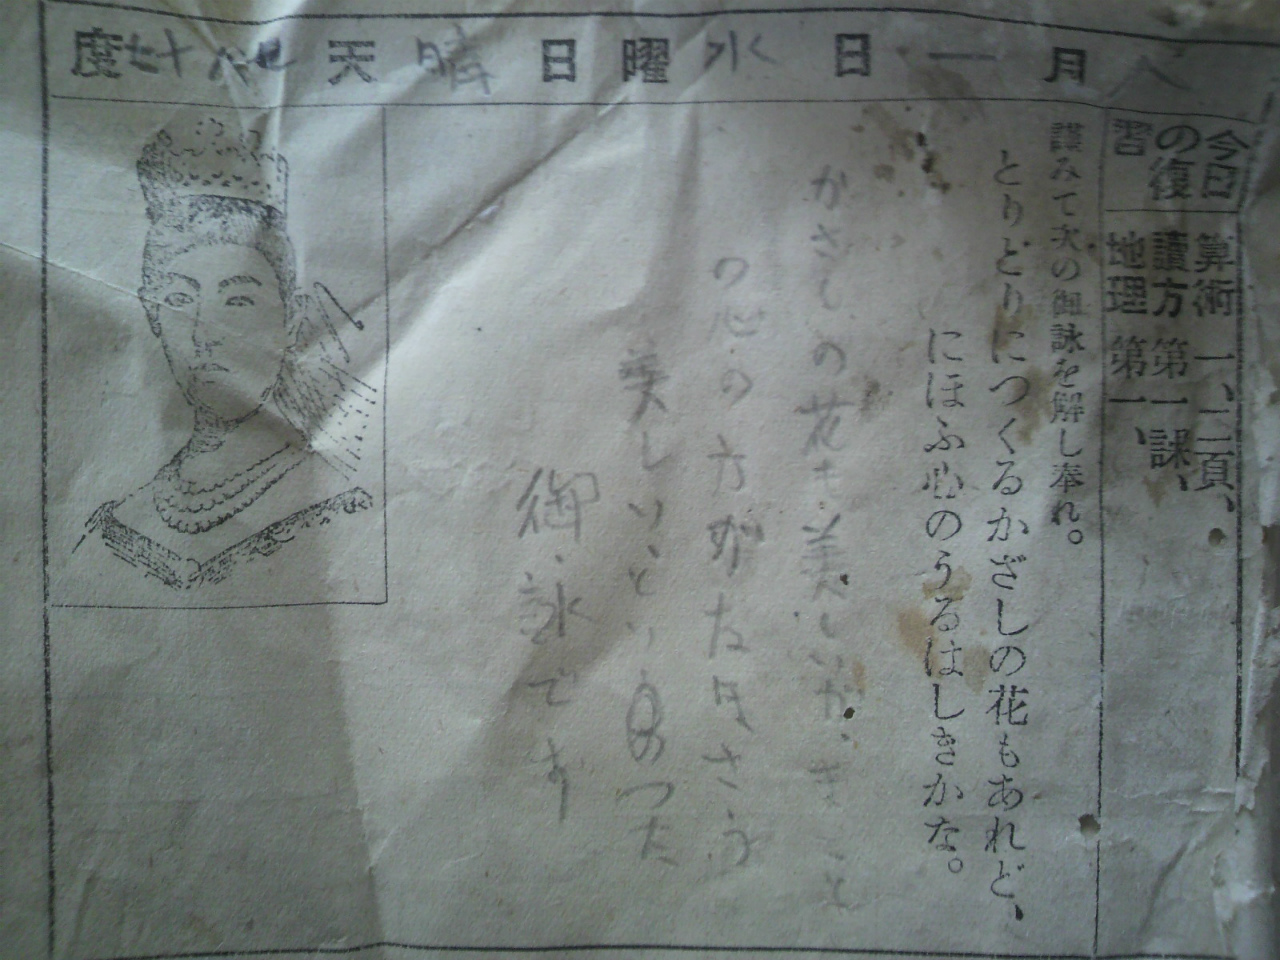 八月一日水曜日晴天 度
今日の復習
算術 一、二頁、
讀方 第一課、
地理 第一、
謹みて次の御詠を解し奉れ。
とりどりにつくるかざしの花もあれど、
にほふ心のうるはしきかな。
かざしの花も美しいが、まこと
の心の方がたなさう
美しいといあつた
御詠です